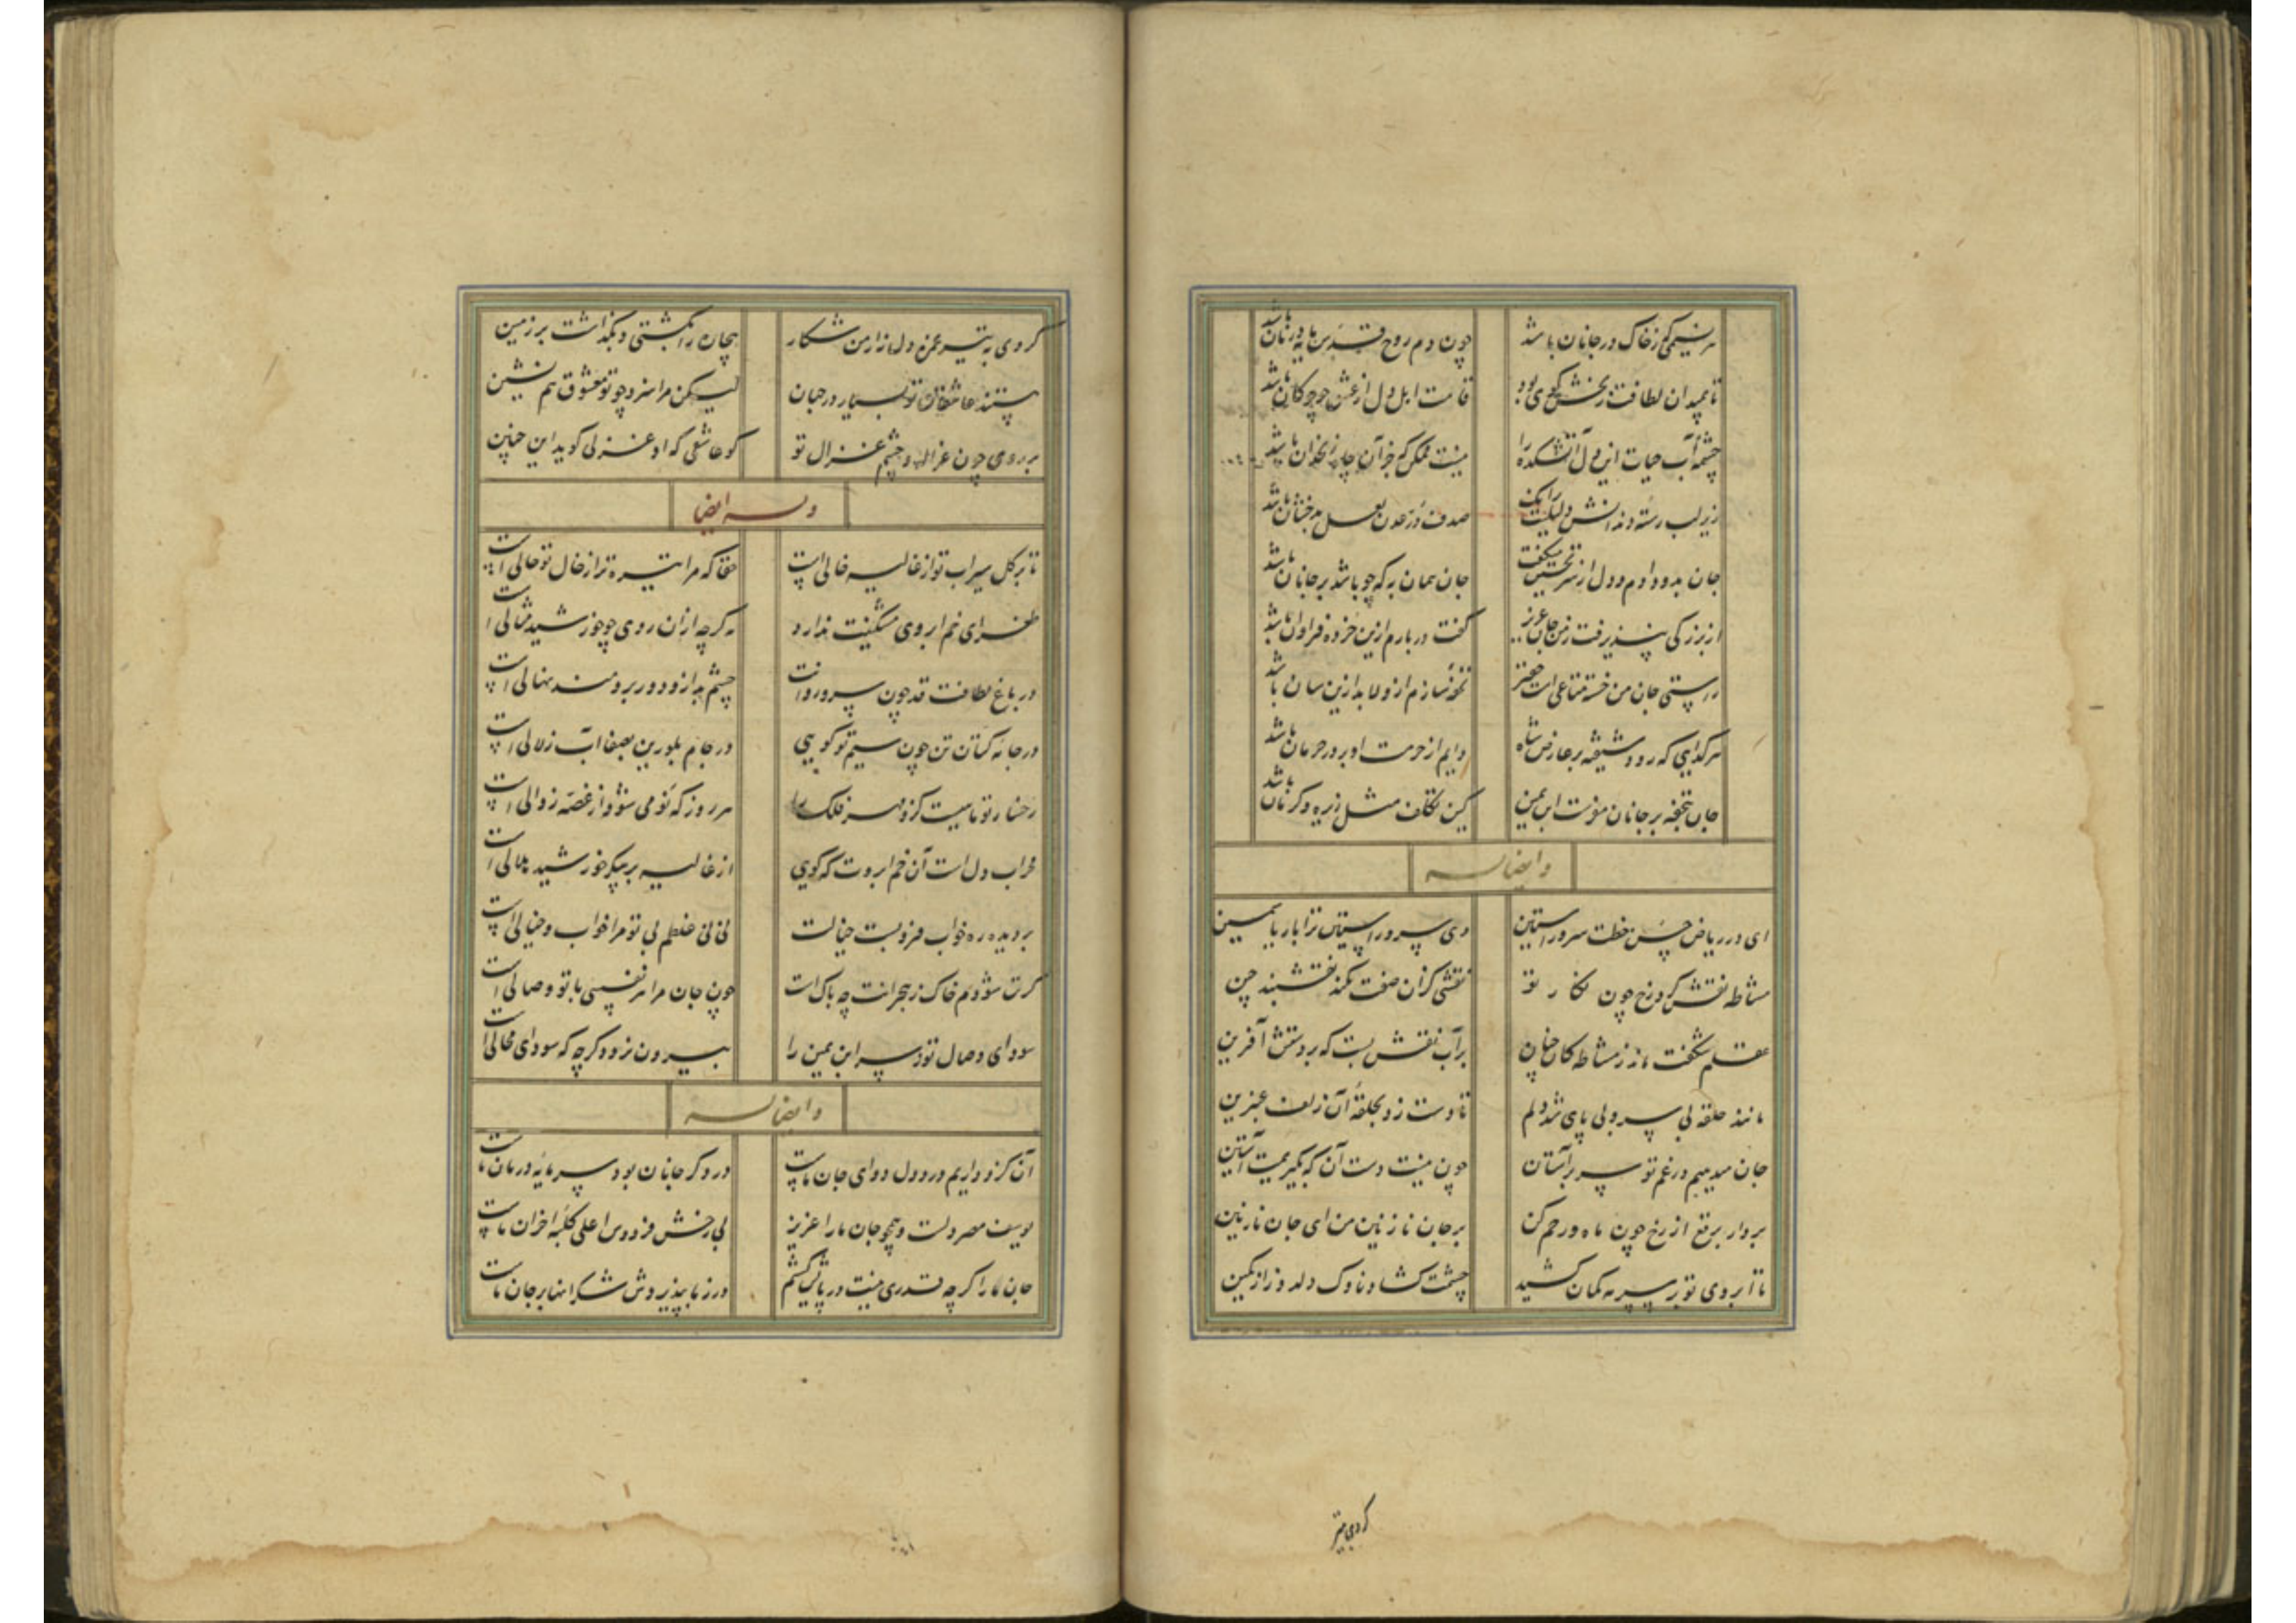 هر نسیمی کز خاک در جانان باشد چون دم روح قدس مایه درمان باشد
تا بمیدان لطافت زنخش گوی بود قامت اهل دل از عشق چو چوکان باشد
چشمه آب حیات این دل آتشکده را نیست ممکن که جز آن چاه زنخدان باشد
زیر لب رسته دندانش صدف در عدن لعل بدخشان باشد
جان بدو دادم و دل از سر تحسین میکفت جان همان به که چو باشد بر جانان باشد
از بزرکی نپذیرفت ز من جان عزیز گفت در بارم ازین خرده فراوان باشد
راستی جان من خسته متاعی است حقیر تحفه سازم ازو لابد ازین سان باشد
هر کدایی که رود شیفته بر عارض شاه دایم از حرمت او بر در حرمان باشد
جان تحفه بر جانان مفرست ابن یمین کین تکلف مثل زیره و کرمان باشد
وایضا له
ای در ریاض حسن خطت سرو راستین وی سرو راستان ترا بار یاسمین
مشاطه نقش کرد رخ چون نکار تو نقشی کزان صفت نکند نقشبند چین
عقلم شکفت ماند ز مشاطه کان چنان بر آب نقش بست که بر دستش آفرین
مانند حلقه بی سر و بی پای شد دلم تا دست زد بحلقه آن زلف عنبرین
جان میدهیم در غم تو سر بر آستان چون نیست دست آن که بگیریمت آستین
بردار برقع از رخ چون ماه و رحم کن بر جان نازنین من ای جان نازنین
تا ابروی تو بر سر مه کمان کشید چشمت کشاد ناوک دلدوز از کمین
کردی بتیر
کردی به تیر غمزه دل زار من شکار بیچاره را بکشتی و بگذاشت بر زمین
هستند عاشقان تو بسیار در جهان لیکن مرا سزد چو تو معشوق هم نشین
بر روی چون غزاله و چشم غزال تو کو عاشقی که او غزلی کوید این چنین
وله ایضا
تا بر کل سیراب تو از غالیه خالی است حقا که مرا تیره تر از خال تو حالی است
طغرای خم ابروی مشکینت ندارد هر چه از آن روی چو خورشید مثالی است
در باغ لطافت قد چون سرو روانت چشم بد ازو دور برومند نهالی است
در جامه کتان تن چون سیم تو کویی در جام بلورین بصفا آب زلالی است
رخسار تو ماهیست کزو مهر فلک را هر روز که نو می شود از غصه زوالی است
محراب دل است آن خم ابروت که کویی از غالیه بر پیکر خورشید هلالی است
بر دیده ره خواب فرو بست خیالت نی نی غلطم بی تو مرا خواب و خیالی است
کر تن شودم خاک ز هجرانت چه باک است چون جان مرا هر نفسی با تو وصالی است
سودای وصال تو ز سر ابن یمین را بیرون نرود کرچه که سودای محالی است
وایضا له
آن کزو داریم درد دل دوای جان ماست درد کر جانان بود سرمایه درمان ماست
یوسف مصر دلست و همچو جان ما را عزیز بی رخش فردوس اعلی کلبه احزان ماست
جان ما را کرچه قدری نیست در پایش کشم ور ز ما بپذیردش شکرانها بر جان ماست